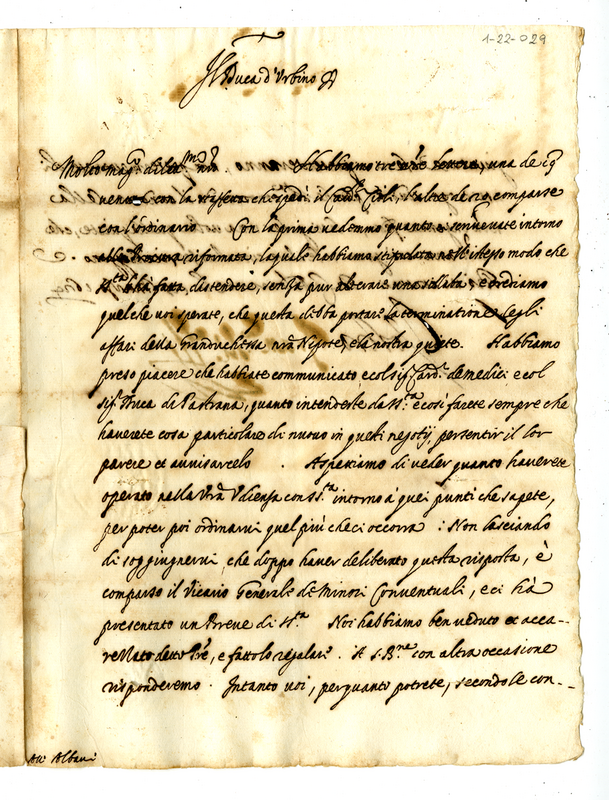 1-22-029
Il Duca d'Urbino &
Molto mag.co dilett.mo n.ro Habbiamo tre v.re lettere, una de 19
venuta con la staffetta che spedì il Card.l l'altre de 20 comparse
con l'ordinario. Con la prima vedemmo quanto scrivevate intorno
alla Procura riformata, laquale habbiamo stipulata nell'istesso modo che
S.tà l'hà fatta distendere, senza pur alterare una sillaba, e crediamo
quel che voi sperate, che questa debba portare la terminatione degli
affari della Granduchessa n.ra Nipote, e la nostra quiete. Habbiamo
preso piacere che habbiate communicato e col sig.r Card.l de medici e col
sig.r Duca di Pastrana, quanto intendeste da S. S.tà e così farete sempre che
haverete cosa particolare di nuovo in questi negotij, per sentir il lor
parere et avvisarcelo. Aspettiamo di veder quanto haverete
operato nella v.ra Udienza con S. S.tà intorno à quei punti che sapete,
per poter poi ordinarvi quel più che ci occorra: Non lasciando
di soggiugnervi, che doppo haver deliberato questa risposta, è
comparso il Vicario Generale de Minori Conventuali, e ci hà
presentato un Breve di S. S.tà Noi habbiamo ben veduto et acca-
rezzato detto P.re, e fattolo regalare. A S. B.ne con altra occasione
risponderemo. Intanto voi, per quanto potrete, secondo le con-
All' Albani